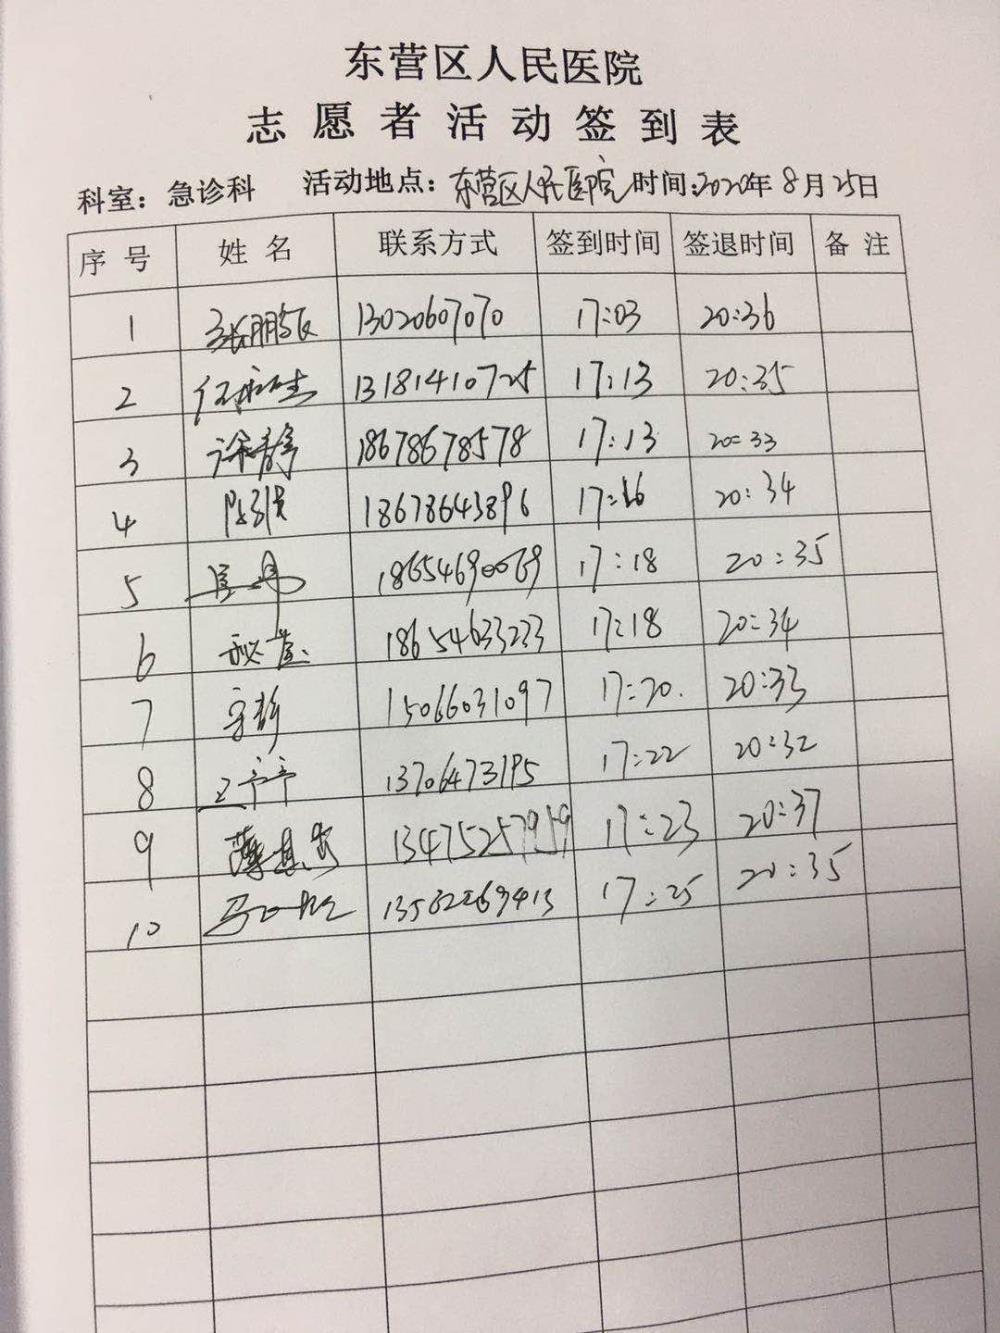 东营区人民医院
志愿者活动签到表
科室：急诊科 活动地点：东营区人民医院 时间：2020年8月25日
序号 姓名 联系方式 签到时间 签退时间 备注
1 13020607070 17:03 20:36
2 13181410725 17:13 20:35
3 徐静 18678678578 17:13 20:33
4 18678643896 17:16 20:34
5 18654690069 17:18 20:35
6 18654633233 17:18 20:34
7 15066031097 17:20 20:33
8 王宁宁 13706473195 17:22 20:32
9 13475257959 17:23 20:37
10 13562269413 17:25 20:35